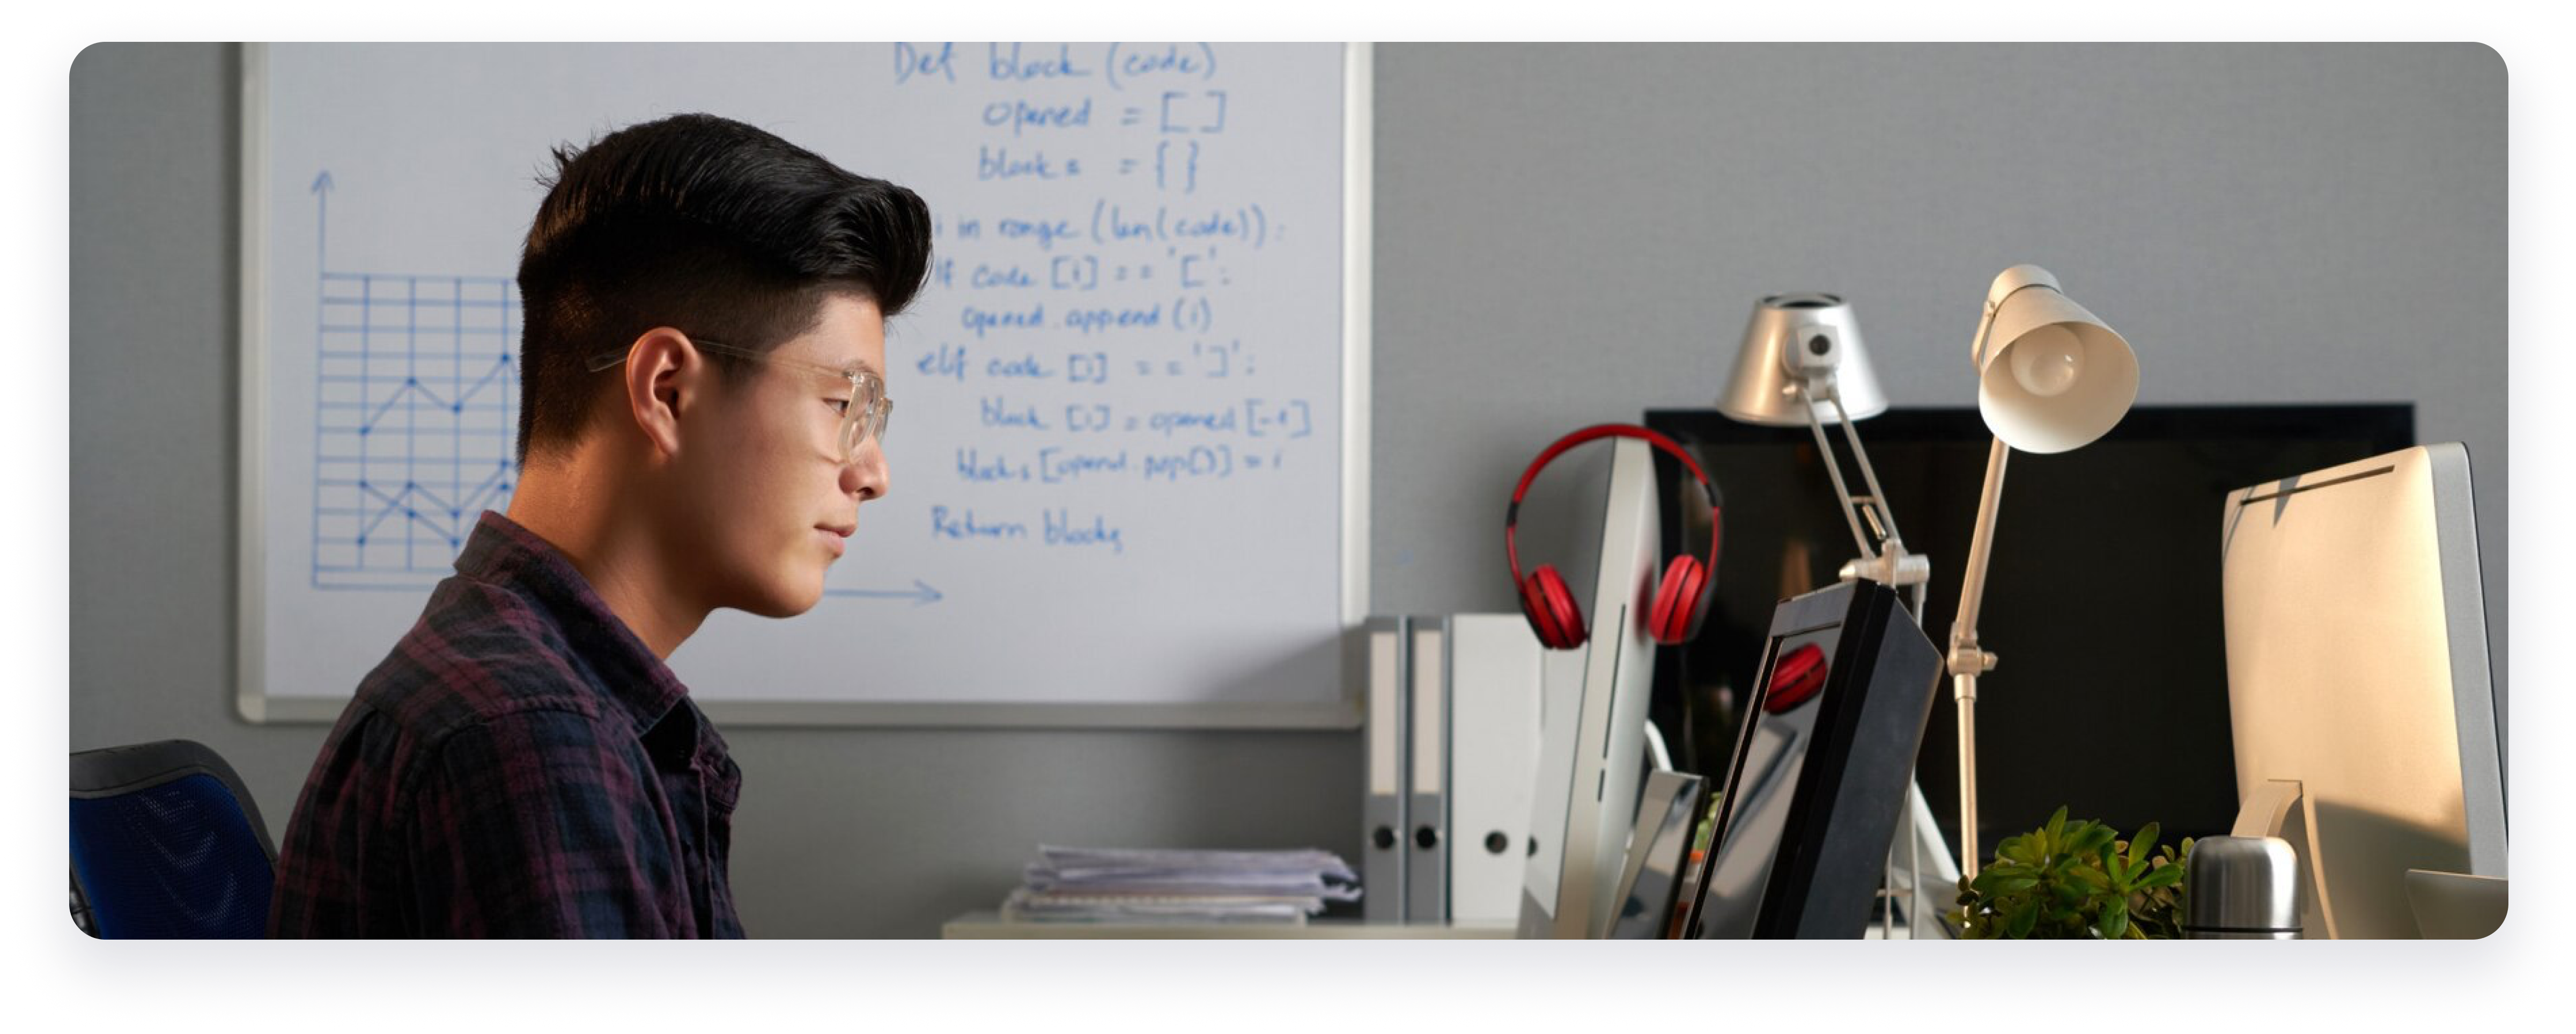 Def block (code)
opened = [ ]
blocks = { }
i in range (len(code)):
if code [i] == '[':
opened.append (i)
elf code [i] == ']':
block [i] = opened [-1]
blocks [opened.pop()] = i
Return blocks